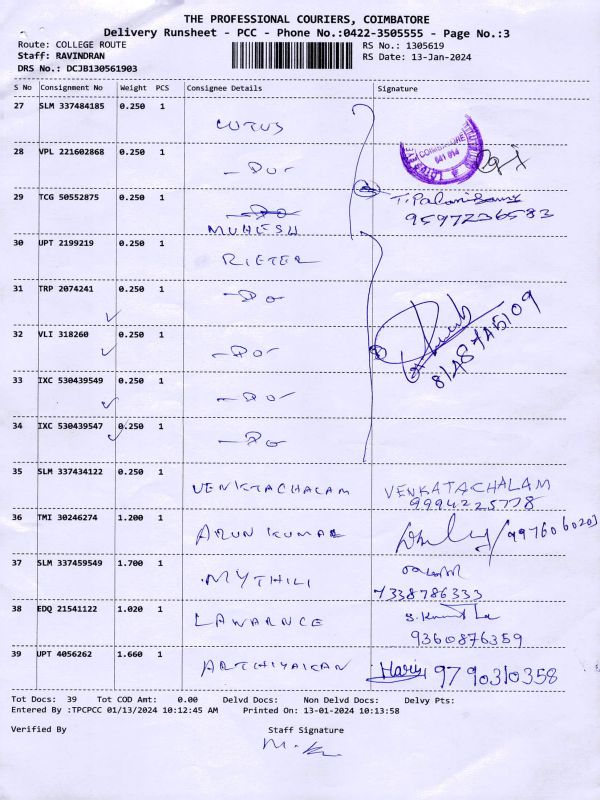 THE PROFESSIONAL COURIERS, COIMBATORE
Delivery Runsheet - PCC - Phone No.:0422-3505555 - Page No.:3
Route: COLLEGE ROUTE RS No.: 1305619
Staff: RAVINDRAN RS Date: 13-Jan-2024
DRS No.: DCJB130561903
S No Consignment No Weight PCS Consignee Details Signature
27 SLM 337484185 0.250 1 LOTUS
28 VPL 221602868 0.250 1 -Do-
COIMBATORE
641 014
29 TCG 50552875 0.250 1 -Do T. Palanisamy
MUKESH 9597236583
30 UPT 2199219 0.250 1 RIETER
31 TRP 2074241 0.250 1 -Do
32 VLI 318260 0.250 1 -Do-
33 IXC 530439549 0.250 1 -Do-
34 IXC 530439547 0.250 1 -Do
35 SLM 337434122 0.250 1 VENKTACHALAM VENKATACHALAM
9994225778
36 TMI 30246274 1.200 1 ARUN KUMAR 9976060203
37 SLM 337459549 1.700 1 MYTHILI
7338786333
38 EDQ 21541122 1.020 1 LAWARNCE
9360876359
39 UPT 4056262 1.660 1 Haris 9790310358
Tot Docs: 39 Tot COD Amt: 0.00 Delvd Docs: Non Delvd Docs: Delvy Pts:
Entered By :TPCPCC 01/13/2024 10:12:45 AM Printed On: 13-01-2024 10:13:58
Verified By Staff Signature